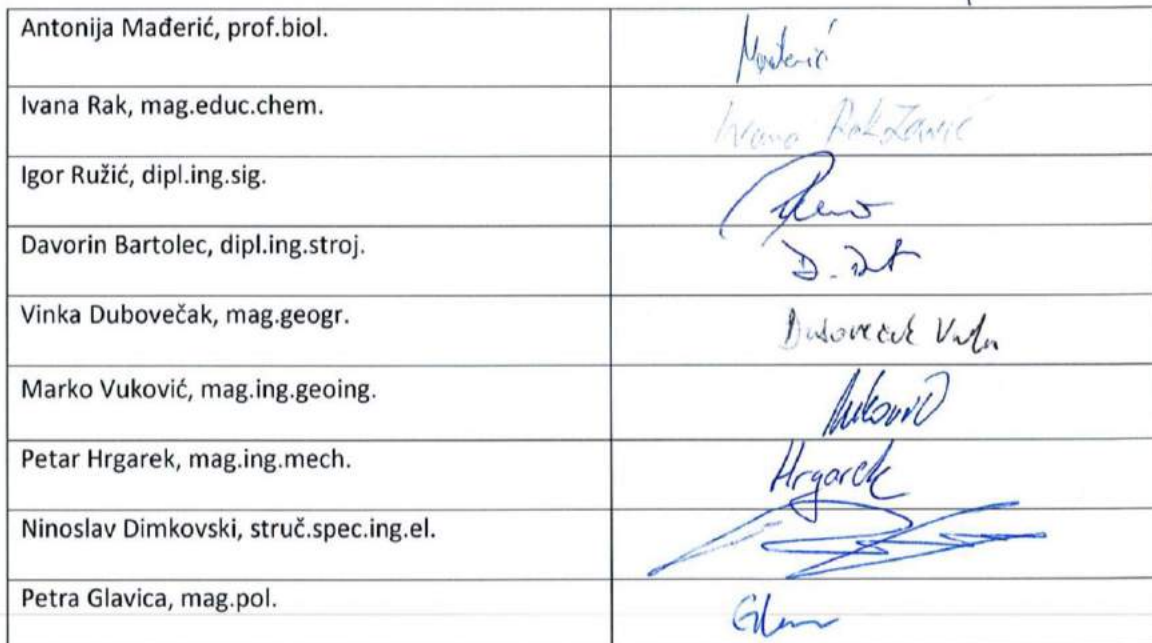 Antonija Mađerić, prof.biol.
Mađerić
Ivana Rak, mag.educ.chem.
Ivana Rak Zarić
Igor Ružić, dipl.ing.sig.
Davorin Bartolec, dipl.ing.stroj.
Vinka Dubovečak, mag.geogr.
Dubovečak
Marko Vuković, mag.ing.geoing.
Petar Hrgarek, mag.ing.mech.
Hrgarek
Ninoslav Dimkovski, struč.spec.ing.el.
Petra Glavica, mag.pol.